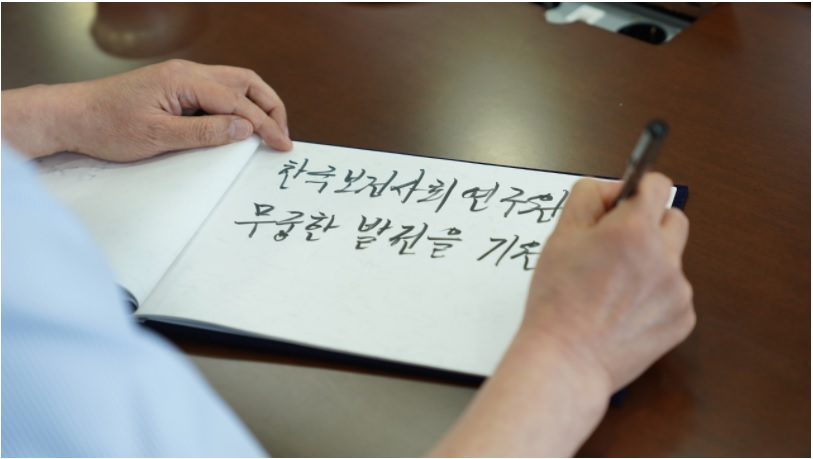 한국보건사회연구원
무궁한 발전을 기원